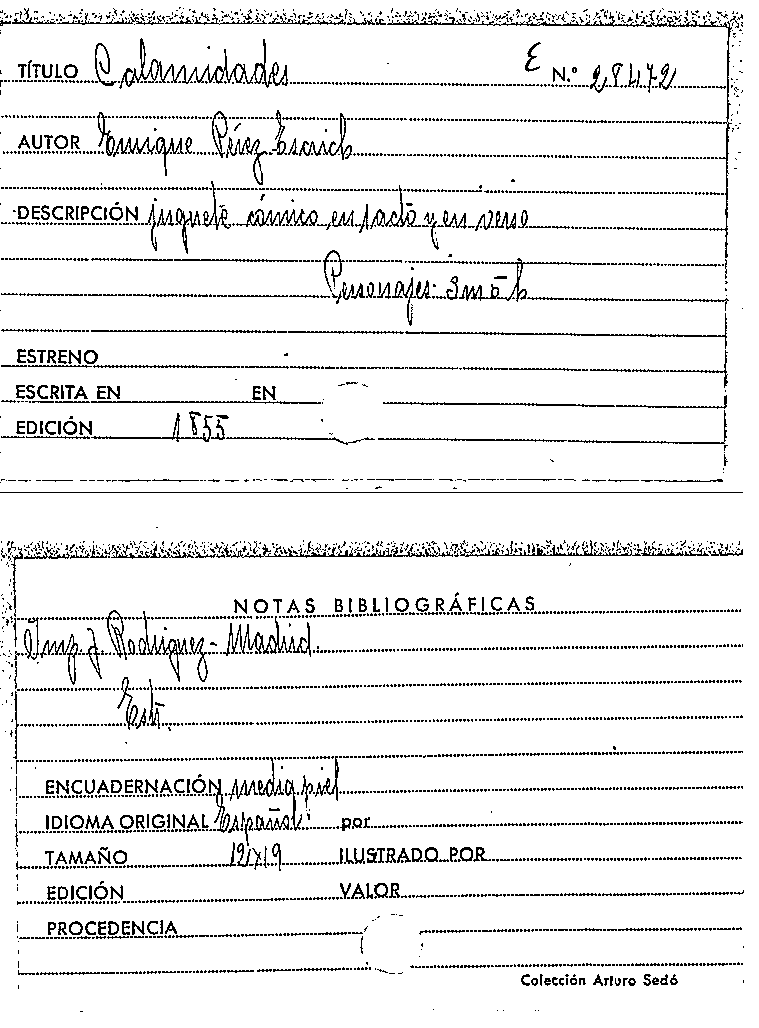 TÍTULO Calamidades E N.º 28472
AUTOR Enrique Pérez Escrich
DESCRIPCIÓN juguete cómico en 1 acto y en verso
Personajes: 3 m 5 h
ESTRENO
ESCRITA EN EN
EDICIÓN 1855
NOTAS BIBLIOGRÁFICAS
Imp. J. Rodriguez - Madrid.
ENCUADERNACIÓN media piel
IDIOMA ORIGINAL Español por
TAMAÑO 12x19 ILUSTRADO POR
EDICIÓN VALOR
PROCEDENCIA
Colección Arturo Sedó